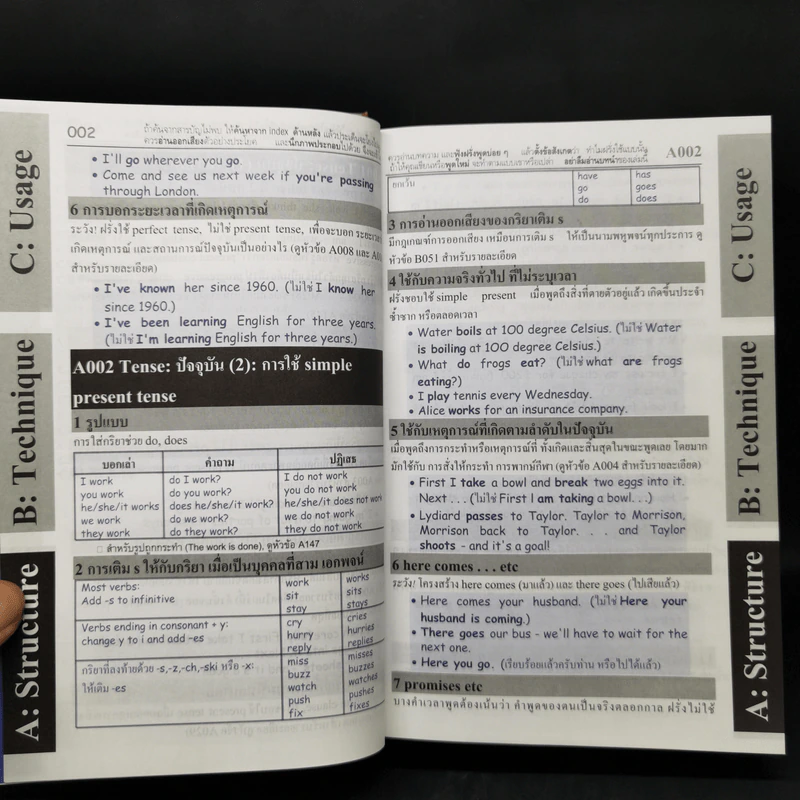 C: Usage
B: Technique
A: Structure
002
ถ้าค้นจากสารบัญไม่พบ ให้ค้นหาจาก index ด้านหลัง แล้วประเด็นจะ
ควรอ่านออกเสียงตัวอย่างประโยค และนึกภาพประกอบไปด้วย
• I'll go wherever you go.
• Come and see us next week if you're passing
through London.
6 การบอกระยะเวลาที่เกิดเหตุการณ์
ระวัง! ฝรั่งใช้ perfect tense, ไม่ใช่ present tense, เพื่อจะบอก ระยะเวลา
เกิดเหตุการณ์ และสถานการณ์ปัจจุบันเป็นอย่างไร (ดูหัวข้อ A008 และ
สำหรับรายละเอียด)
• I've known her since 1960. (ไม่ใช่ I know her
since 1960.)
• I've been learning English for three years.
(ไม่ใช่ I'm learning English for three years.)
A002 Tense: ปัจจุบัน (2): การใช้ simple
present tense
1 รูปแบบ
การใส่กริยาช่วย do, does
บอกเล่า คำถาม ปฏิเสธ
I work do I work? I do not work
you work do you work? you do not work
he/she/it works does he/she/it work? he/she/it does not work
we work do we work? we do not work
they work do they work? they do not work
□ สำหรับรูปถูกกระทำ (The work is done), ดูหัวข้อ A147
2 การเติม s ให้กับกริยา เมื่อเป็นบุคคลที่สาม เอกพจน์
Most verbs: work works
Add -s to infinitive sit sits
stay stays
Verbs ending in consonant + y: cry cries
change y to i and add -es hurry hurries
reply replies
กริยาที่ลงท้ายด้วย -s,-z,-ch,-ski หรือ -x: miss misses
ให้เติม -es buzz buzzes
watch watches
push pushes
fix fixes
ควรอ่านบทความ และฟังฝรั่งพูดบ่อย ๆ แล้วตั้งข้อสังเกตว่า ทำไมฝรั่งใช้แบบนั้น
ถ้าให้คุณเขียนหรือพูดใหม่ จะทำตามแบบเขาหรือเปล่า อย่าลืมอ่านบทนำของเล่มนี้
A002
ยกเว้น have has
go goes
do does
3 การอ่านออกเสียงของกริยาเติม s
มีกฎเกณฑ์การออกเสียง เหมือนการเติม s ให้เป็นนามพหูพจน์ทุกประการ ดู
หัวข้อ B051 สำหรับรายละเอียด
4 ใช้กับความจริงทั่วไป ที่ไม่ระบุเวลา
ฝรั่งชอบใช้ simple present เมื่อพูดถึงสิ่งที่ตายตัวอยู่แล้ว เกิดขึ้นประจำ
ซ้ำซาก หรือตลอดเวลา
• Water boils at 100 degree Celsius. (ไม่ใช่ Water
is boiling at 100 degree Celsius.)
• What do frogs eat? (ไม่ใช่ what are frogs
eating?)
• I play tennis every Wednesday.
• Alice works for an insurance company.
5 ใช้กับเหตุการณ์ที่เกิดตามลำดับในปัจจุบัน
เมื่อพูดถึงการกระทำหรือเหตุการณ์ที่ ทั้งเกิดและสิ้นสุดในขณะพูดเลย โดยมาก
มักใช้กับ การสั่งให้กระทำ การพากษ์กีฬา (ดูหัวข้อ A004 สำหรับรายละเอียด)
• First I take a bowl and break two eggs into it.
Next . . . (ไม่ใช่ First I am taking a bowl. . .)
• Lydiard passes to Taylor. Taylor to Morrison,
Morrison back to Taylor. . . and Taylor
shoots - and it's a goal!
6 here comes . . . etc
ระวัง! โครงสร้าง here comes (มาแล้ว) และ there goes (ไปเสียแล้ว)
• Here comes your husband. (ไม่ใช่ Here your
husband is coming.)
• There goes our bus - we'll have to wait for the
next one.
• Here you go. (เรียบร้อยแล้วครับท่าน หรือไปได้แล้ว)
7 promises etc
บางคำเวลาพูดต้องเน้นว่า คำพูดของตนเป็นจริงตลอดกาล ฝรั่งไม่ใช้
C: Usage
B: Technique
A: Structure